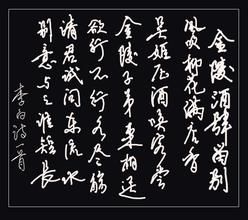 金陵酒肆留别
风吹柳花满店香
吴姬压酒唤客尝
金陵子弟来相送
欲行不行各尽觞
请君试问东流水
别意与之谁短长
李白诗一首